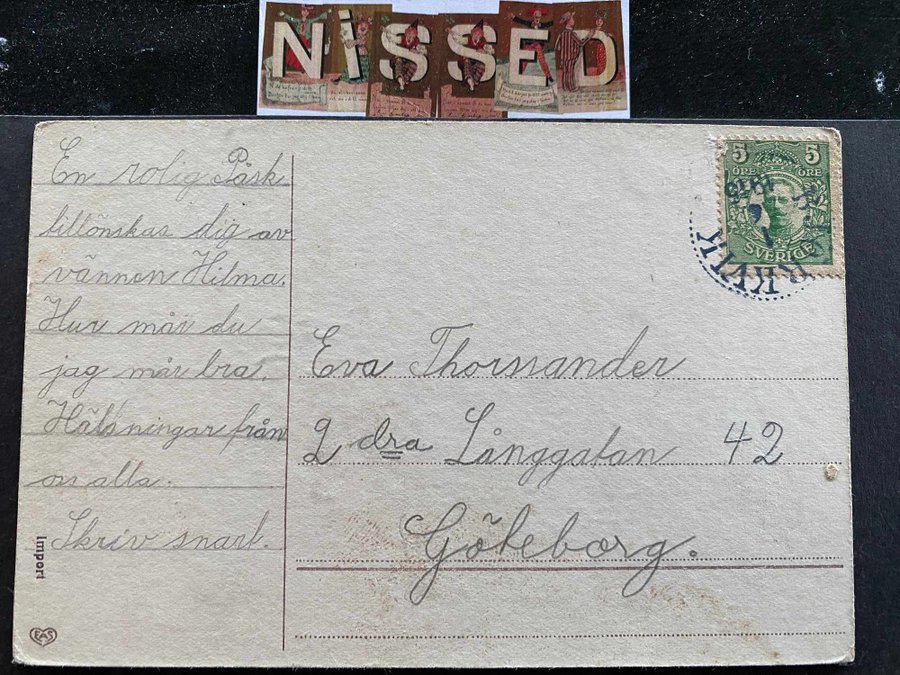 NISSED
En rolig Påsk
tillönskas dig av
vännen Hilma.
Hur mår du
jag mår bra.
Hälsningar från
oss alla.
Skriv snart.
Import
EAS
5 5
ÖRE ÖRE
SVERIGE
Eva Thornander
2 dra Långgatan 42
Göteborg.